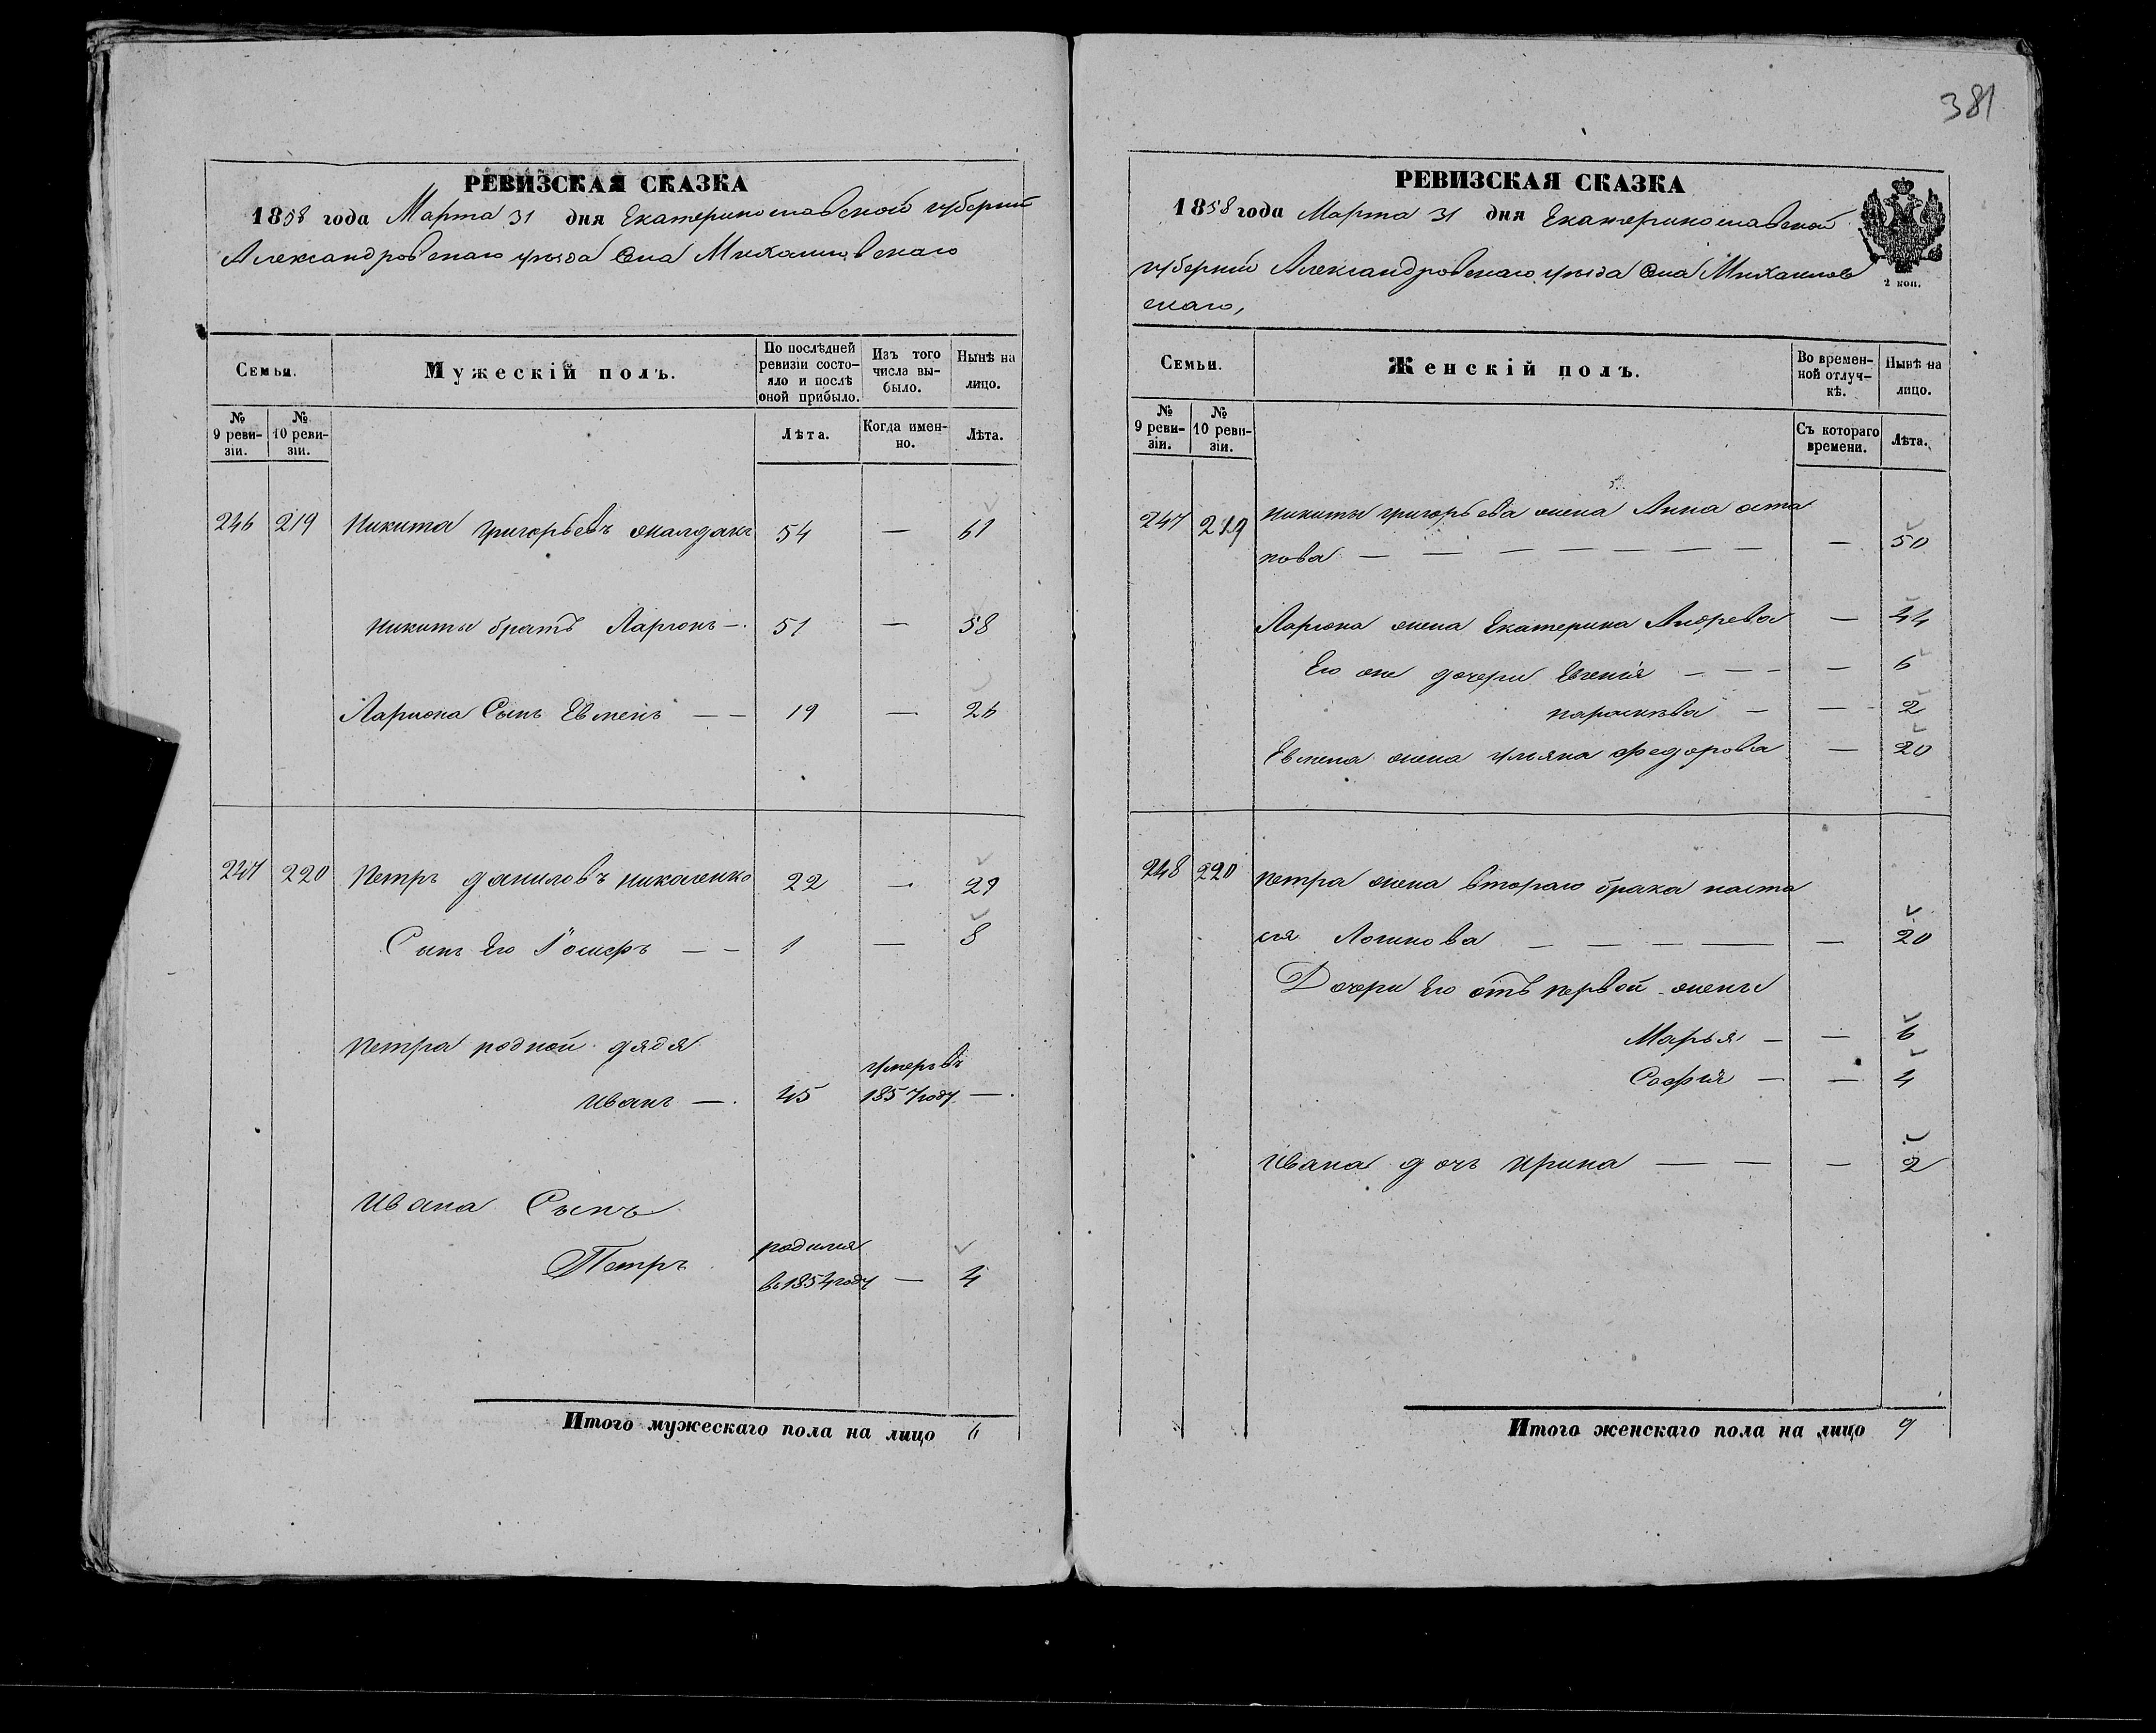 381
РЕВИЗСКАЯ СКАЗКА
1858 года Марта 31 дня Екатеринославской губернии
Александровскаго уезда Села Михайловскаго
Семьи.
Мужескій полъ.
По послѣдней ревизіи состояло и послѣ оной прибыло.
Изъ того числа выбыло.
Нынѣ на лицо.
№ 9 ревизіи.
№ 10 ревизіи.
Лѣта.
Когда именно.
Лѣта.
246 219 Никита Григорьевъ 54 — 61
Никиты братъ Ларіонъ — 51 — 58
Лариона Сынъ Евменъ — — 19 — 26
247 220 Петръ Даниловъ 22 — 29
Сынъ Его — — 1 — 8
Петра родной дядя
умеръ въ
Иванъ — 45 1857 году —
Ивана Сынъ
родился
Петръ в 1854 году — 4
Итого мужескаго пола на лицо 6
РЕВИЗСКАЯ СКАЗКА
1858 года Марта 31 дня Екатеринославской
губерніи Александровскаго уезда Села Михаилов
скаго,
2 коп.
Семьи.
Женскій полъ.
Во временной отлучкѣ.
Нынѣ на лицо.
№ 9 ревизіи.
№ 10 ревизіи.
Съ котораго времени.
Лѣта.
247 219 Никиты Григорьева жена Анна Оста
пова — — — — — — — — 50
Лариона жена Екатерина Андрева — 44
Его же дочери Евгенія — — — — 6
Параскева — — 2
Евмена жена Ульяна Федорова — 20
248 220 Петра жена втораго брака Наста
сія Логинова — — — — — 20
Дочери Его отъ первой жены
Марья — — 6
Софія — — 4
Ивана дочь Ирина — — — 2
Итого женскаго пола на лицо 9